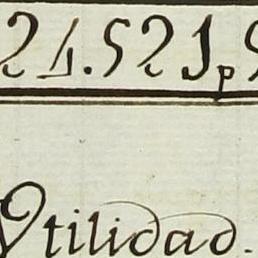 24.521p
Utilidad.